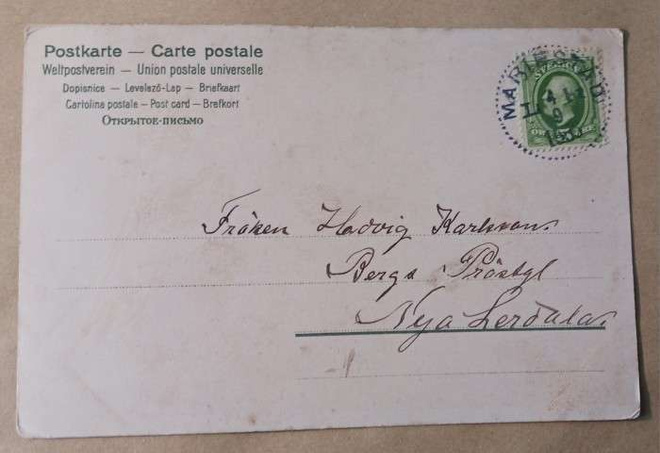 Postkarte — Carte postale
Weltpostverein — Union postale universelle
Dopisnice — Levelező-Lap — Briefkaart
Cartolina postale — Post card — Brefkort
Открытое-письмо
MARIESTAD
SVERIGE
4
9
Fröken Hedvig Karlsson.
Bergs Pröstgl
Nya Lerdala.